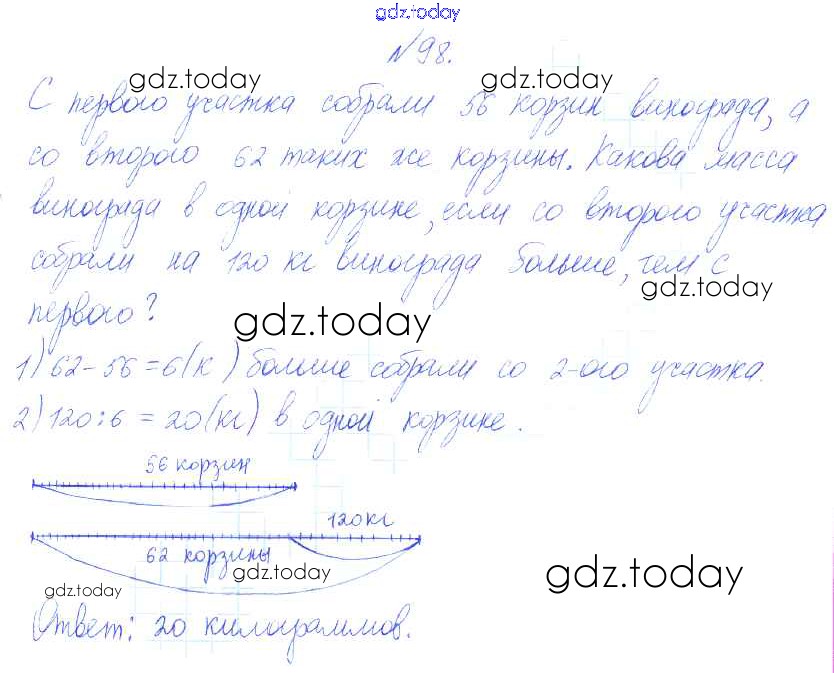 gdz.today
№98.
gdz.today gdz.today
С первого участка собрали 56 корзин винограда, а
со второго 62 таких же корзины. Какова масса
винограда в одной корзине, если со второго участка
собрали на 120 кг винограда больше, чем с
gdz.today
первого?
gdz.today
1) 62-56=6(к) больше собрали со 2-ого участка.
2) 120:6 = 20(кг) в одной корзине.
56 корзин
120кг
62 корзины
gdz.today
gdz.today
gdz.today
Ответ: 20 килограммов.